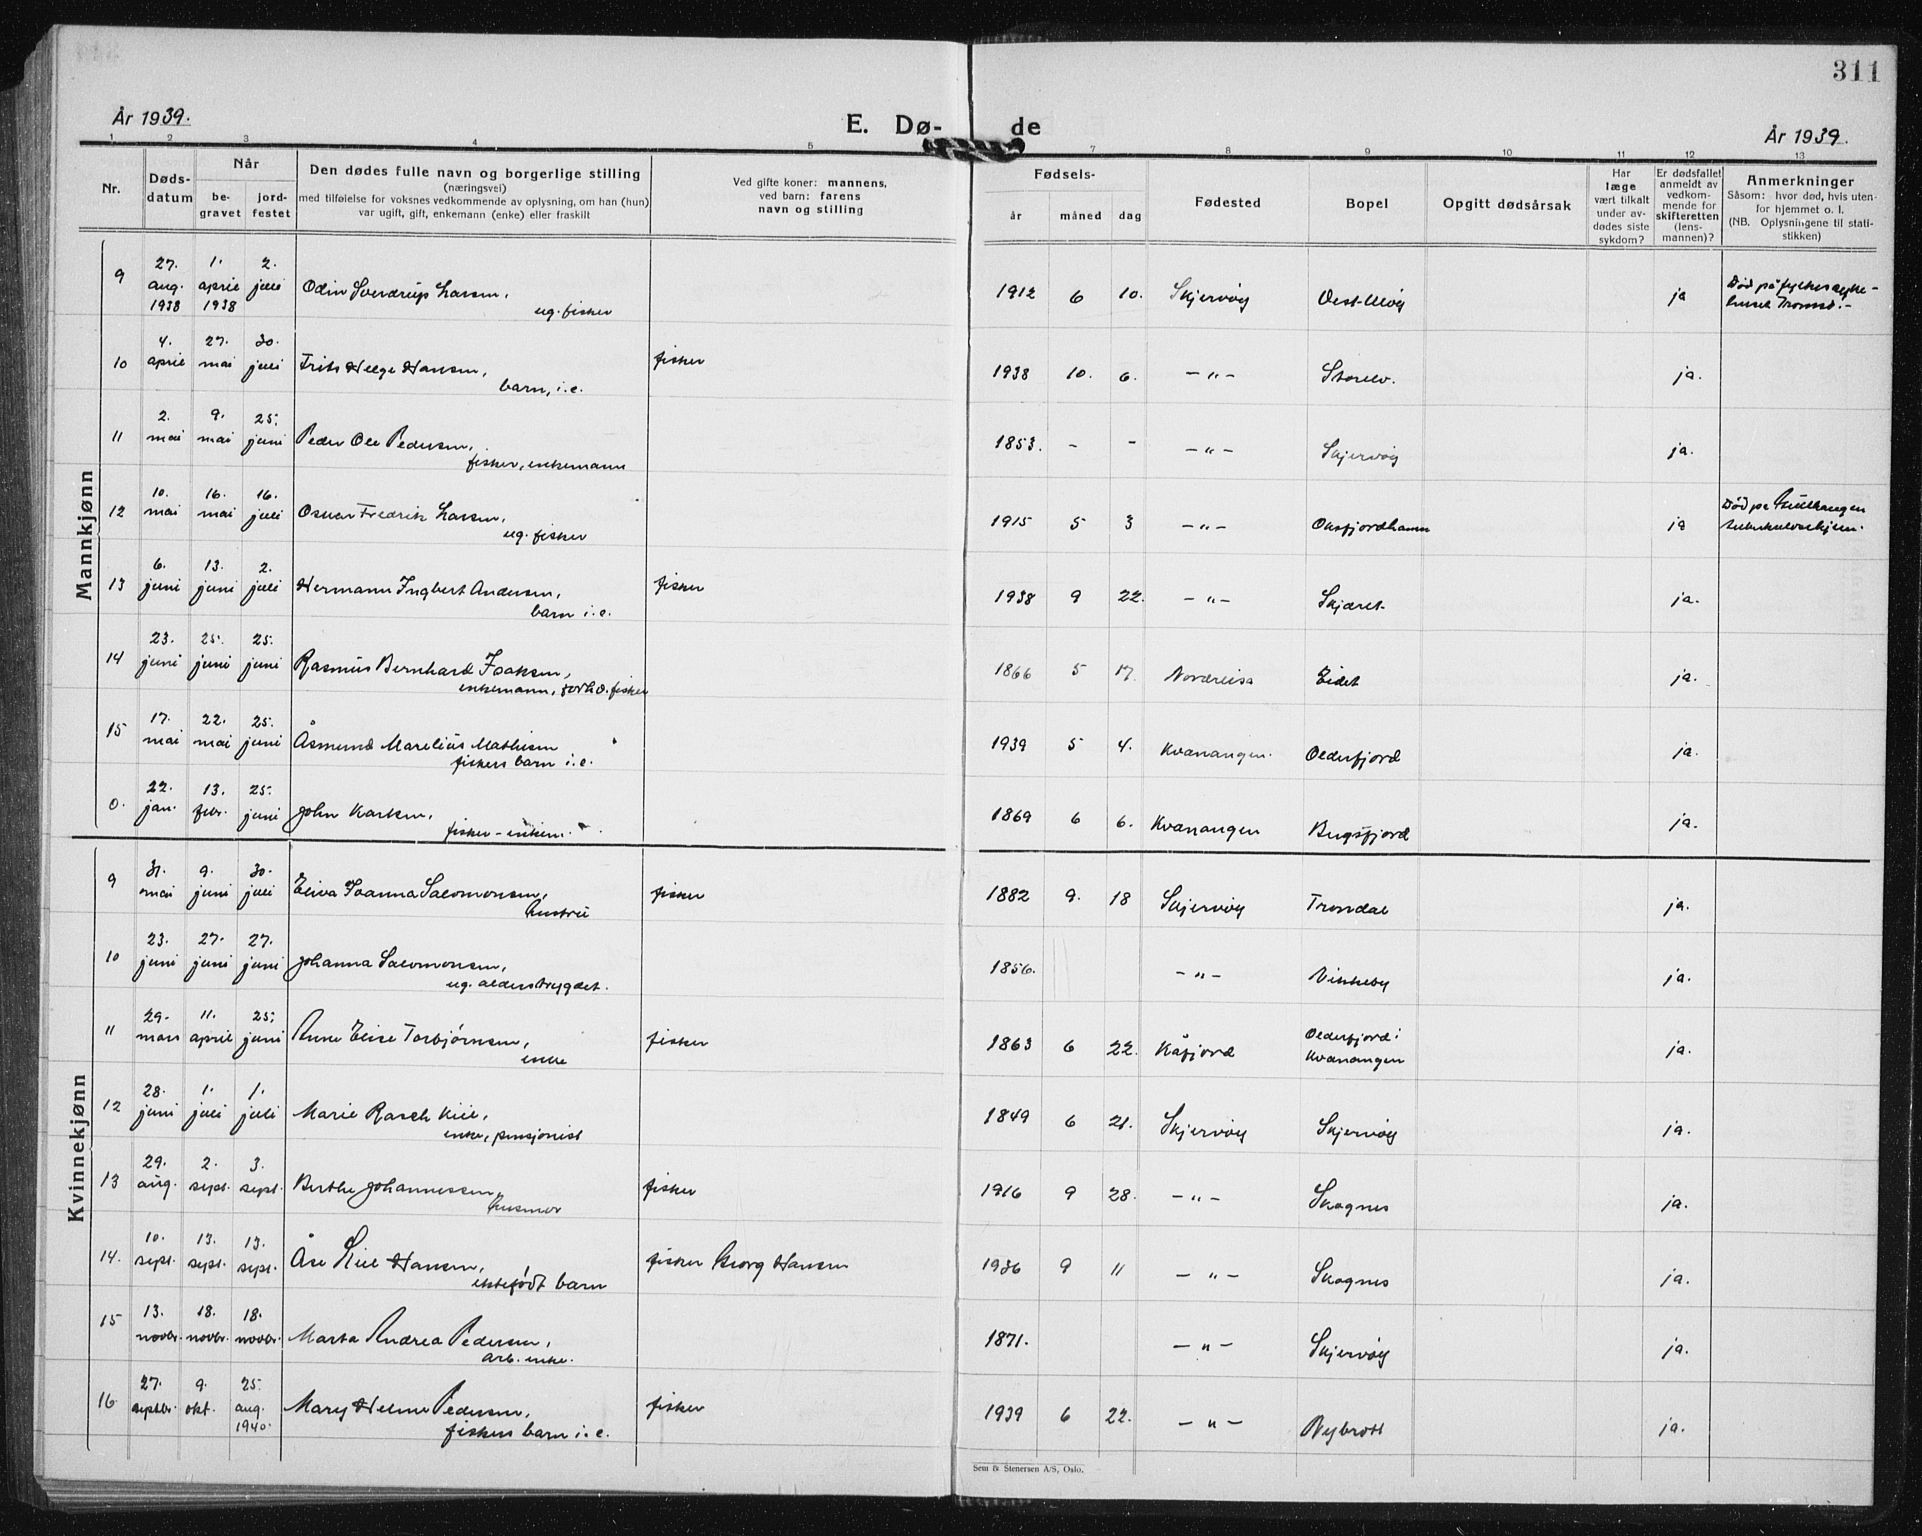 311
År 1939.
E. Dø-
de
År 1939.
1 2 3 4 5 7 8 9 10 11 12 13
Nr.
Døds-
datum
Når
be-
gravet
jord-
festet
Den dødes fulle navn og borgerlige stilling
(næringsvei)
med tilføielse for voksnes vedkommende av oplysning, om han (hun)
var ugift, gift, enkemann (enke) eller fraskilt
Ved gifte koner: mannens,
ved barn: farens
navn og stilling
Fødsels-
år måned dag
Fødested
Bopel
Opgitt dødsårsak
Har
læge
vært tilkalt
under av-
dødes siste
sykdom?
Er dødsfallet
anmeldt av
vedkom-
mende for
skifteretten
(lens-
mannen)?
Anmerkninger
Såsom: hvor død, hvis uten-
for hjemmet o. l.
(NB. Oplysningene til stati-
stikken)
Mannkjønn
9 27. aug. 1938 1. april 1938 2. juli Odin Sverdrup Larsen,
ug. fisker
1912 6 10. Skjervøy ja Død på fylkessyke-
huset Tromsø.-
10 4. april 27. mai 30. juli Frits Helge Hansen, fisker
barn, i.e.
1938 10. 6. -"- Storelv. ja.
11 2. mai 9. mai 25. juni Peder Ole Pedersen,
fisker, enkemann
1853. - - -"- Skjervøy ja.
12 10. mai 16. mai 16. juli Oskar Fredrik Larsen,
ug. fisker
1915 5 3 -"- Oksfjordhamn ja Død på
tuberkulosehjem.
13 6. juni 13. juni 2. juli Hermann Ingbert Andersen, fisker
barn i.e.
1938 9 22. -"- Skjæret ja.
14 23. juni 25. juni 25. juni Rasmus Bernhard Isaksen,
enkemann, forhv. fisker
1866 5 17. Nordreisa Eidet ja.
15 17. mai 22. mai 25. juni Åsmund Marelius Mathisen
fiskers barn i.e.
1939 5 4. Kvænangen. Olderfjord ja.
0. 22. jan. 13. febr. 25. juni John Karlsen,
fisker - enkem.
1869 6 6. Kvænangen Burfjord ja.
Kvinnekjønn
9 31. mai 9. juni 30. juli Eliva Joanna Salomonsen, fisker
hustru
1882 9. 18 Skjervøy Trondal ja.
10 23. juni 27. juni 27. juni Johanna Salomonsen,
ug. alderstrygdet.
1856. -"- Vinkeby ja.
11 29. mars 11. april 25. juni Anne Elise Torbjørnsen, fisker
enke
1863 6 22. Kåfjord Olderfjord i
Kvænangen ja.
12 28. juni 1. juli 1. juli Marie Rasch Kiil,
enke, pensjonist
1849 6 21. Skjervøy Skjervøy ja.
13 29. aug. 2. sept. 3. sept. Berthe Johannessen, fisker
husmor
1916 9 28. -"- Skognes ja.
14. 10. sept. 13. sept. 13. sept. Åse Kiil Hansen, fisker Georg Hansen
ektefødt barn
1936 9 11 -"- Skognes ja.
15 13. novbr. 18. novbr. 18. novbr. Marta Andrea Pedersen,
arb. enke.
1871. -"- Skjervøy ja.
16 27. septbr. 9. okt. 25. aug. 1940. Mary Helene Pedersen, fisker
fiskers barn i.e.
1939 6 22. -"- Nybrott ja.
Sem & Stenersen A/S, Oslo.